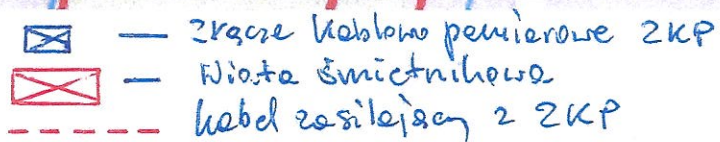 — złącze kablowo pomiarowe ZKP
— wiata śmietnikowa
kabel zasilający z ZKP